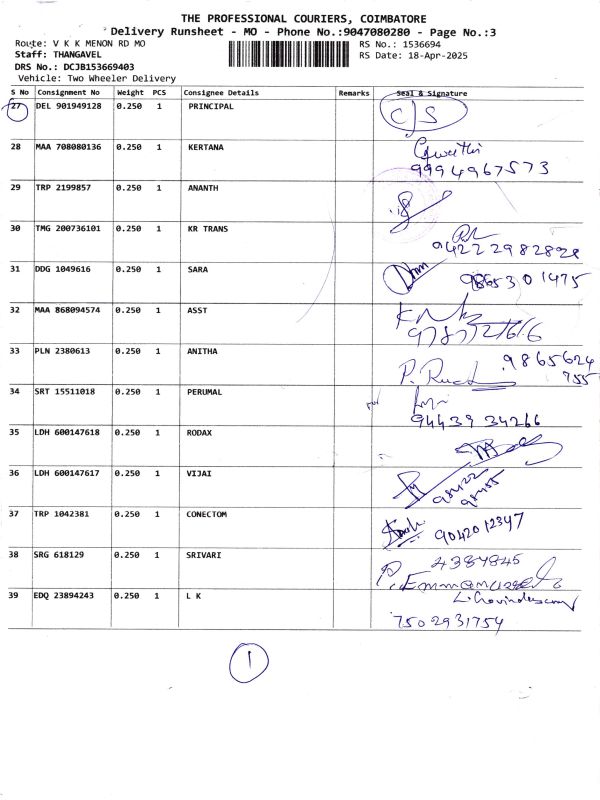 THE PROFESSIONAL COURIERS, COIMBATORE
Delivery Runsheet - MO - Phone No.:9047080280 - Page No.:3
Route: V K K MENON RD MO
RS No.: 1536694
Staff: THANGAVEL
RS Date: 18-Apr-2025
DRS No.: DCJB153669403
Vehicle: Two Wheeler Delivery
S No Consignment No Weight PCS Consignee Details Remarks Seal & Signature
27 DEL 901949128 0.250 1 PRINCIPAL
28 MAA 708080136 0.250 1 KERTANA
9994967573
29 TRP 2199857 0.250 1 ANANTH
30 TMG 200736101 0.250 1 KR TRANS
31 DDG 1049616 0.250 1 SARA 9865301475
32 MAA 868094574 0.250 1 ASST
33 PLN 2380613 0.250 1 ANITHA 9865624
755
34 SRT 15511018 0.250 1 PERUMAL
94439 34266
35 LDH 600147618 0.250 1 RODAX
36 LDH 600147617 0.250 1 VIJAI
37 TRP 1042381 0.250 1 CONECTOM
9042012347
38 SRG 618129 0.250 1 SRIVARI 4384845
39 EDQ 23894243 0.250 1 L K
7502931754
1